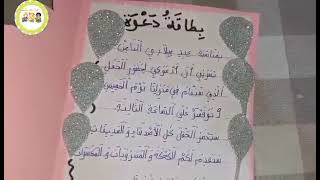 بطاقة دعوة
بمناسبة عيد ميلادي الثامن
يسرني أن أدعوكم لحضور الحفل
الذي سيقام في منزلنا يوم الخميس
9 نوفمبر على الساعة الثالثة.
ستحضر الحفل كل الأصدقاء و الصديقات
سنقدم لكم الكعك و المشروبات و المكسرات